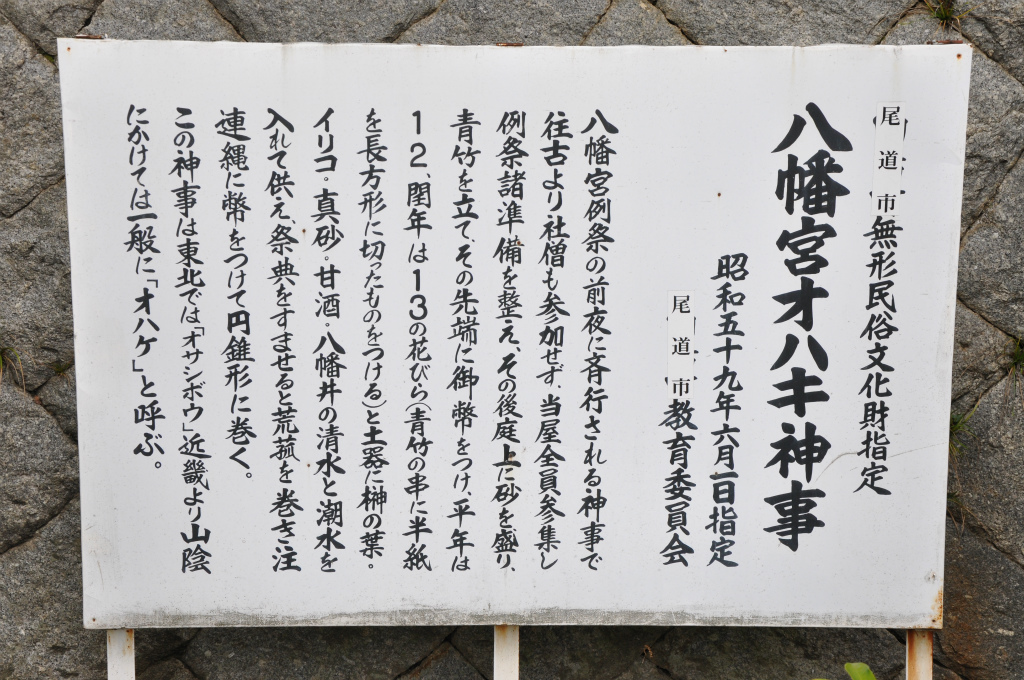 尾道市無形民俗文化財指定
八幡宮オハキ神事
昭和五十九年六月一日指定
尾道市教育委員会
八幡宮例祭の前夜に斉行される神事で
往古より社僧も参加せず、当屋全員参集し
例祭諸準備を整え、その後庭上に砂を盛り、
青竹を立て、その先端に御幣をつけ、平年は
12、閏年は13の花びら(青竹の串に半紙
を長方形に切ったものをつける)と土器に榊の葉。
イリコ。真砂。甘酒。八幡井の清水と潮水を
入れて供え、祭典をすませると荒菰を巻き注
連縄に幣をつけて円錐形に巻く。
この神事は東北では「オサシボウ」近畿より山陰
にかけては一般に「オハケ」と呼ぶ。